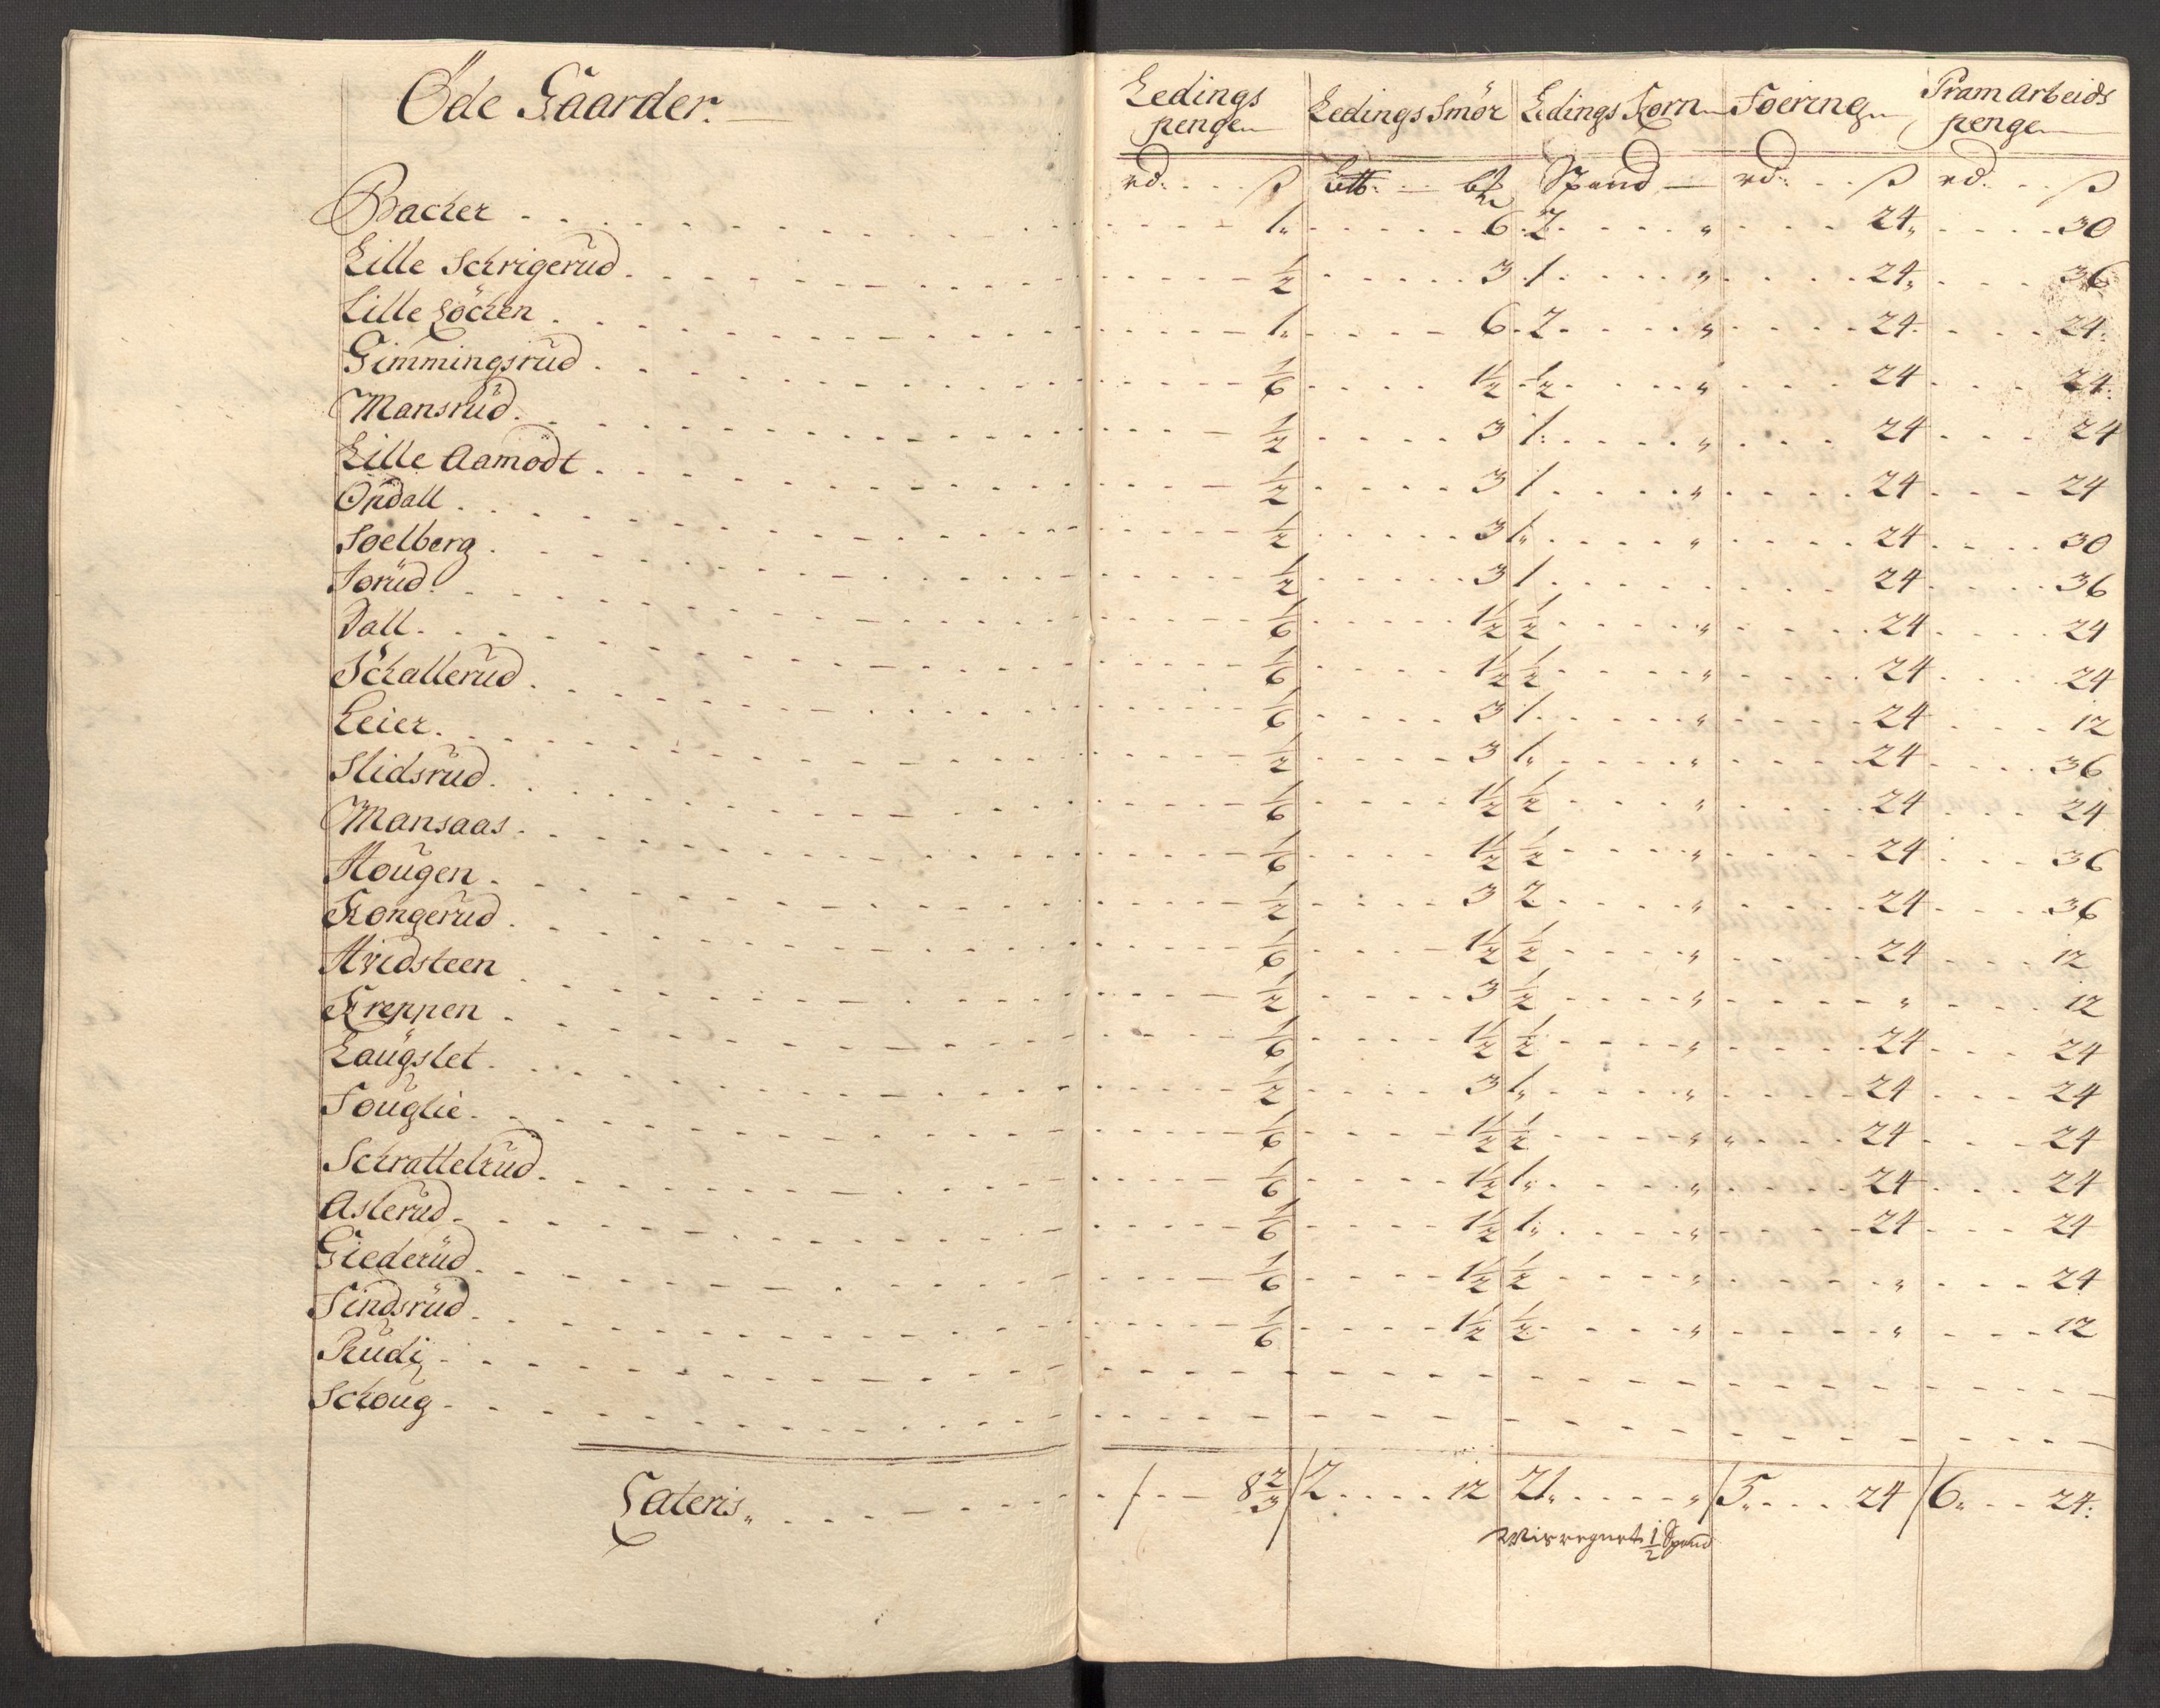 Öde Gaarder.
Ledings penge | Ledings Smör | Ledings Korn | Foering | Pram Arbeids penge
rd. ß | Spand | rd. ß | rd. ß
Bacher 1. 6. 2. " 24, 30
Lille Schrigerud ½ 3 1. " 24, 36
Lille Löchen 1. 6. 2. " 24. 24.
Gimmingsrud 1/6 1½ ½ " 24 24.
Mansrud ½ 3 1. " 24 24
Lille Aamodt ½ 3 1 " 24 24
Opdall ½ 3 1. " 24 30
Soelberg ½ 3 1 24 36
Sorud 1/6 1½ ½ " 24 24
Dall 1/6 1½ ½ " 24 24
Schallerud 1/6 3 1 " 24 12
Leier ½ 3 1. " 24 36
Slidsrud 1/6 1½ ½ " 24 24
Mansaas 1/6 1½ ½ " 24 36
Hougen ½ 3 2 " 24 36
Kongerud 1/6 1½ ½ " 24 12
Hvidsteen ½ 3 ½ " " 12
Kreppen 1/6 1½ ½ " 24 24
Laugslet ½ 3 1. " 24 24
Fouglie 1/6 1½ ½ " " 24 24
Schrattelrud 1/6 1½ 1. " 24 24
Aslerud 1/6 1½ 1. " 24 24
Giederud 1/6 1½ ½ " " 24
Findsrud 1/6 1½ ½ " " 12
Rudi
Schoug
Lateris 8 2/3 / 2 12 21. " / 5. 24 / 6. 24.
Misregnet ½ Spand